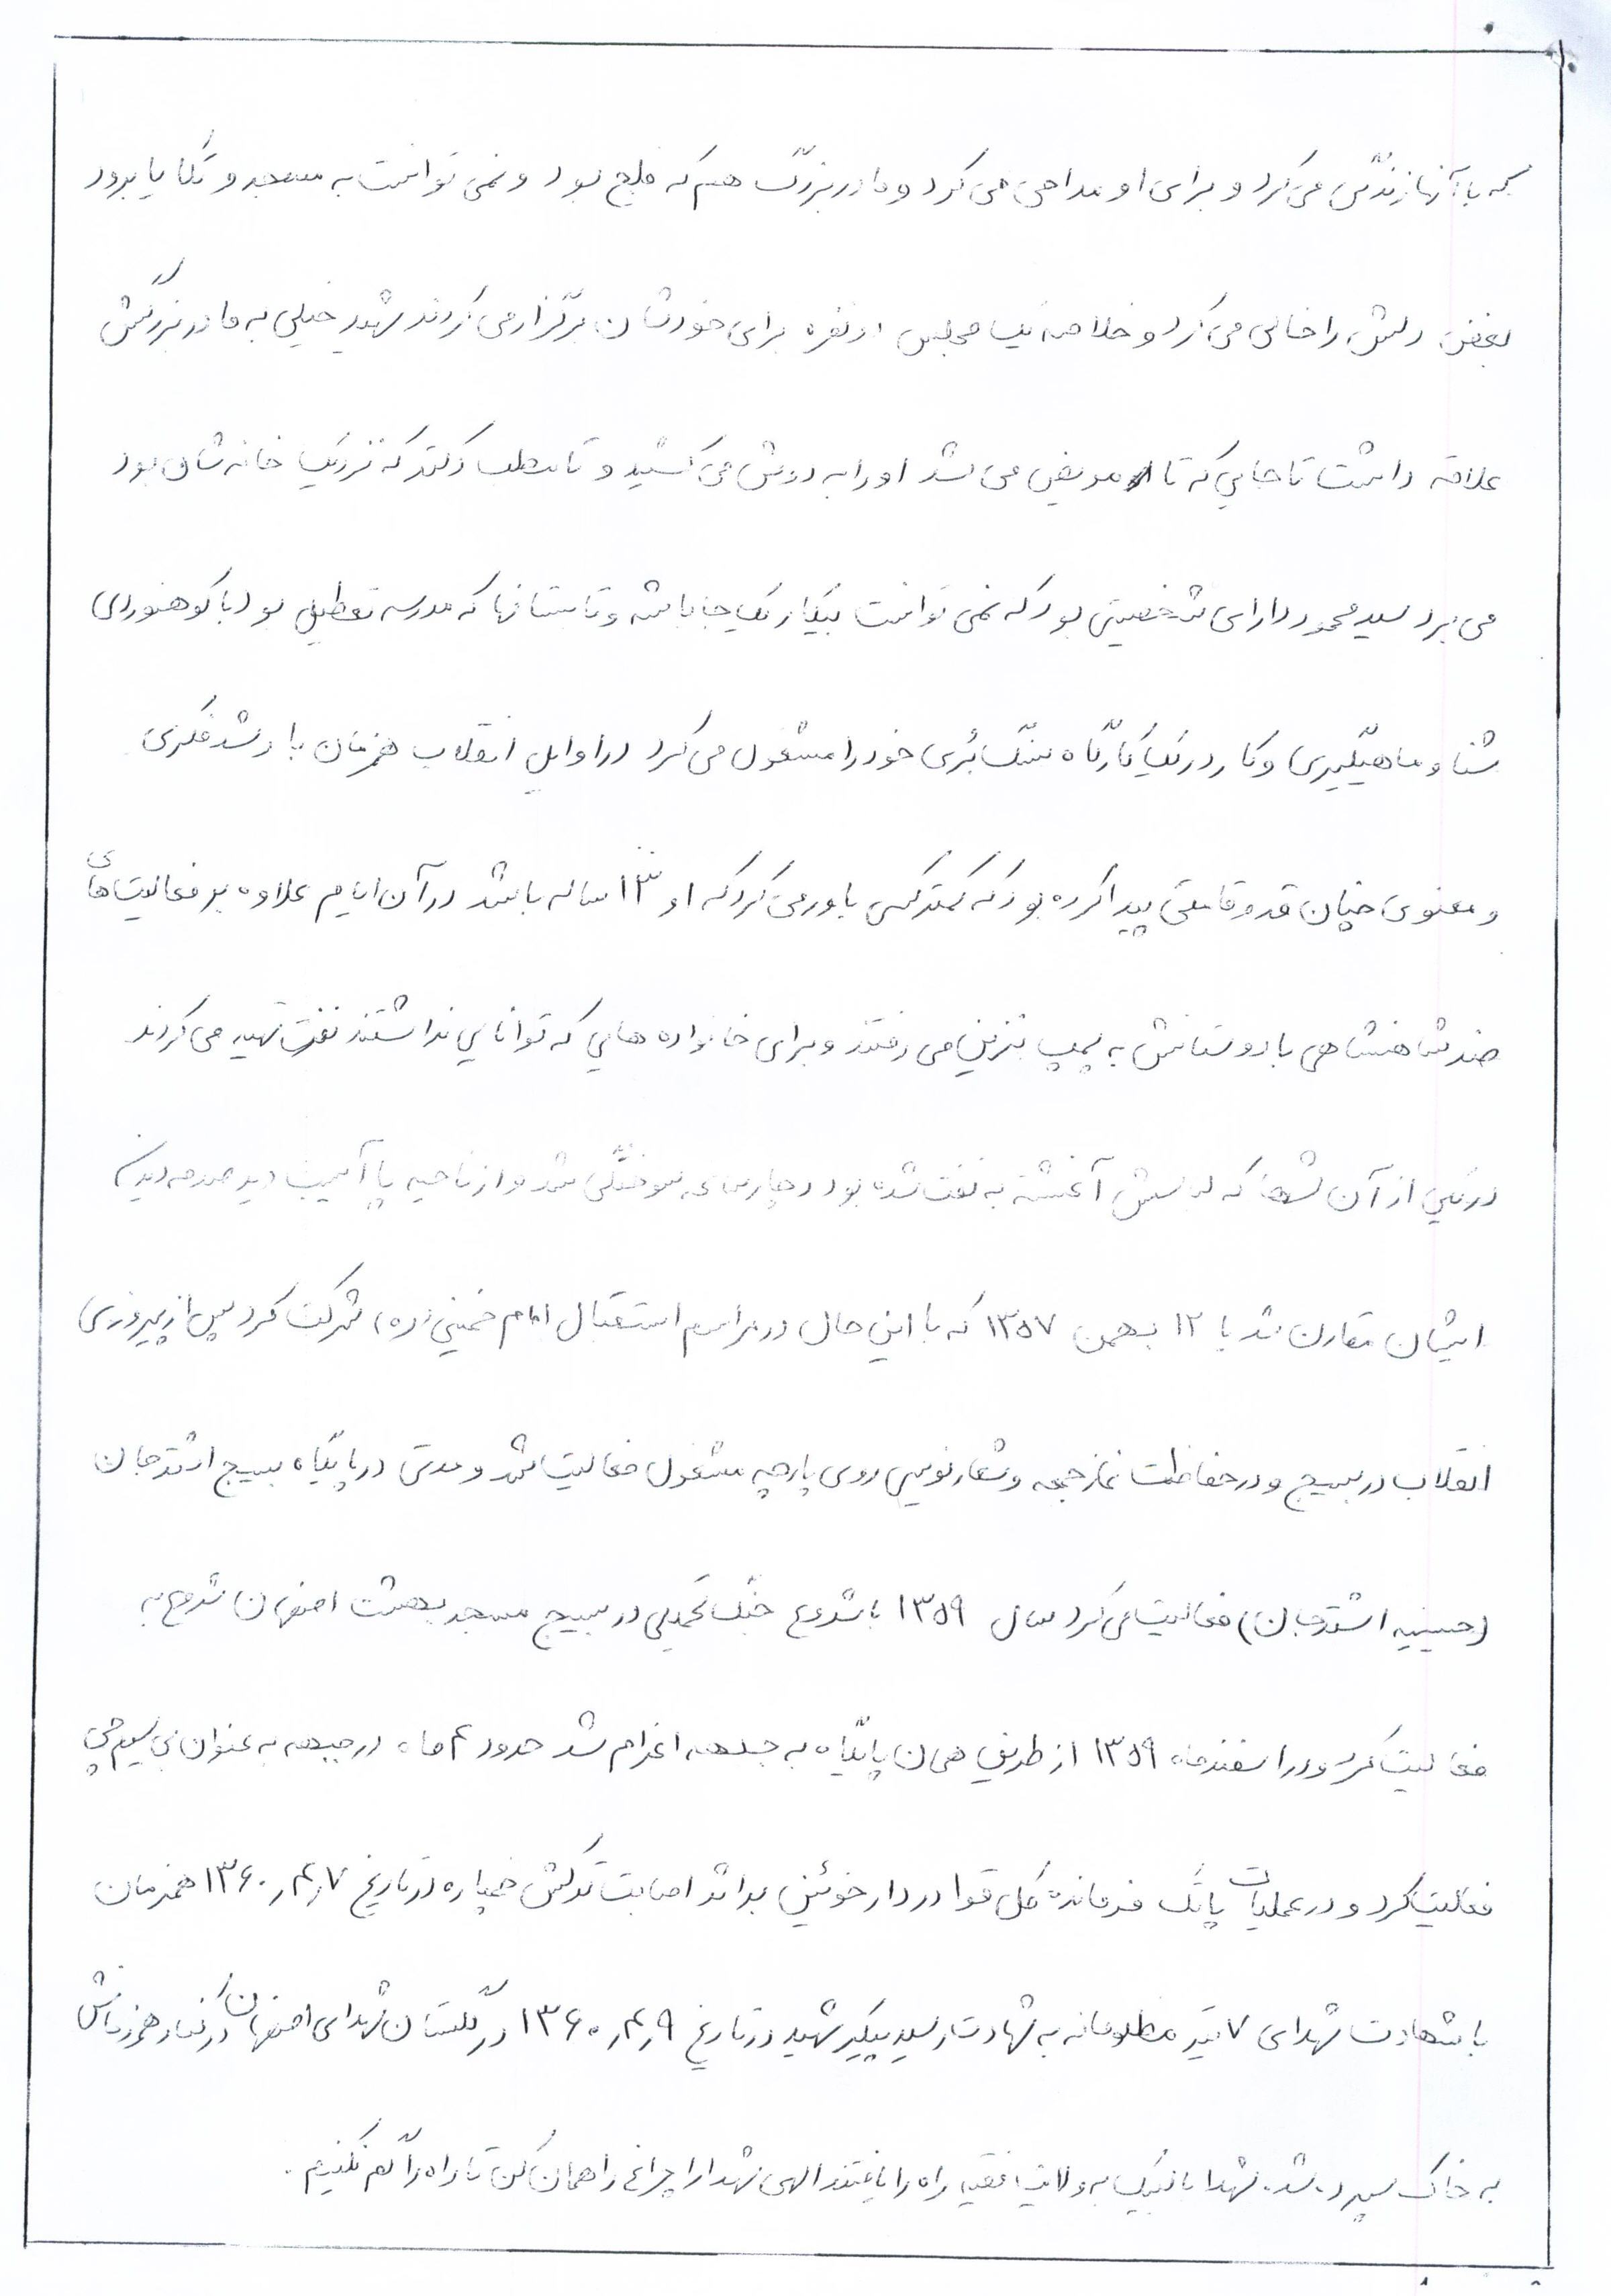 که با آنها زندگی می کرد و برای او مداحی می کرد و مادربزرگ هم که فلج بود و نمی توانست به مسجد و تکایا برود
بغض دلش را خالی می کرد و خلاصه یک مجلس دونفره برای خودشان برگزار می کردند شهید خیلی به مادربزرگش
علاقه داشت تا جایی که تا مریض می شد او را به دوش می کشید و تا مطب دکتر که نزدیک خانه شان بود
می برد سید محمود دارای شخصیتی بود که نمی توانست بیکار یک جا باشه و تابستانها که مدرسه تعطیل بود با کوهنوردی
شنا و ماهیگیری و کار در یک کارگاه سنگ بُری خود را مشغول می کرد در اوایل انقلاب همزمان با رشد فکری
و معنوی چنان قد و قامتی پیدا کرده بود که کمتر کسی باور می کرد که او ۱۳ ساله باشد در آن ایام علاوه بر فعالیت های
ضد شاهنشاهی با دوستانش به پمپ بنزین می رفتند و برای خانواده هایی که توانایی نداشتند نفت تهیه می کردند
در یکی از آن شبها که لباسش آغشته به نفت شده بود دچار سوختگی شد و از ناحیه پا آسیب دید صدمه دیدن
ایشان مقارن شد با ۱۲ بهمن ۱۳۵۷ که با این حال در مراسم استقبال امام خمینی (ره) شرکت کرد پس از پیروزی
انقلاب در بسیج و در حفاظت نماز جمعه و شعارنویسی روی پارچه مشغول فعالیت شد و مدتی در پایگاه بسیج اشترجان
(حسینیه اشترجان) فعالیت می کرد سال ۱۳۵۹ با شروع جنگ تحمیلی در بسیج مسجد بهشت اصفهان شروع به
فعالیت کرد و در اسفندماه ۱۳۵۹ از طریق همان پایگاه به جبهه اعزام شد حدود ۴ ماه در جبهه به عنوان بی سیم چی
فعالیت کرد و در عملیات فرمانده کل قوا در دارخوئین بر اثر اصابت ترکش خمپاره در تاریخ ۱۳۶۰٫۴٫۷ همزمان
با شهادت شهدای ۷ تیر مظلومانه به شهادت رسید پیکر شهید در تاریخ ۱۳۶۰٫۴٫۹ در گلستان شهدای اصفهان در کنار همرزمانش
به خاک سپرده شد. شهدا با لبیک به ولایت فقیه راه را یافتند الهی شهدا را چراغ راهمان کن تا راه را گم نکنیم.